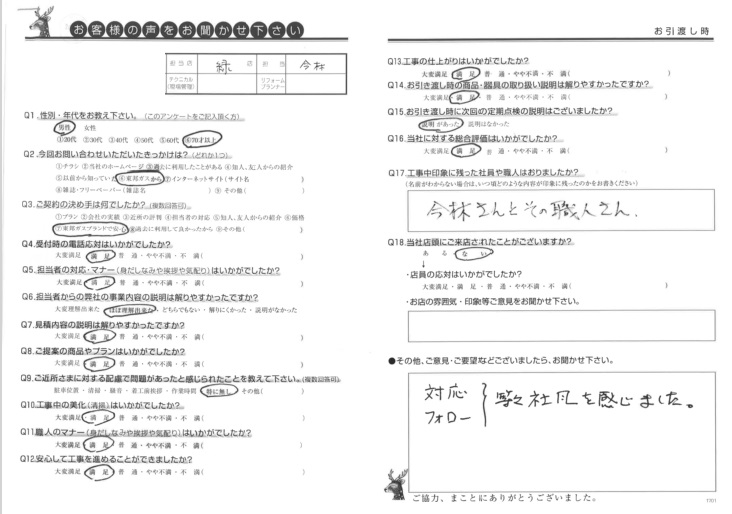 お客様の声をお聞かせ下さい
担当店 緑店 担当 今林
テクニカル(現場管理) リフォームプランナー
Q1.性別・年代をお教え下さい。(このアンケートをご記入頂く方)
男性 女性
①20代 ②30代 ③40代 ④50代 ⑤60代 ⑥70才以上
Q2.今回お問い合わせいただいたきっかけは?(どれか1つ)
①チラシ ②当社のホームページ ③過去に利用したことがある ④知人、友人からの紹介
⑤以前から知っていた ⑥東邦ガスから ⑦インターネットサイト(サイト名 )
⑧雑誌・フリーペーパー(雑誌名 ) ⑨その他( )
Q3.ご契約の決め手は何でしたか?(複数回答可)
①プラン ②会社の実績 ③近所の評判 ④担当者の対応 ⑤知人、友人からの紹介 ⑥価格
⑦東邦ガスブランドで安心 ⑧過去に利用して良かったから ⑨その他( )
Q4.受付時の電話応対はいかがでしたか?
大変満足 満足 普通・やや不満・不満( )
Q5.担当者の対応・マナー(身だしなみや挨拶や気配り)はいかがでしたか?
大変満足 満足 普通・やや不満・不満( )
Q6.担当者からの弊社の事業内容の説明は解りやすかったですか?
大変理解出来た ほぼ理解出来た・どちらでもない・解りにくかった・説明がなかった
Q7.見積内容の説明は解りやすかったですか?
大変満足 満足 普通・やや不満・不満( )
Q8.ご提案の商品やプランはいかがでしたか?
大変満足 満足 普通・やや不満・不満( )
Q9.ご近所さまに対する配慮で問題があったと感じられたことを教えて下さい。(複数回答可)
駐車位置・清掃・騒音・着工前挨拶・作業時間 特に無し その他( )
Q10.工事中の美化(清掃)はいかがでしたか?
大変満足 満足 普通・やや不満・不満( )
Q11.職人のマナー(身だしなみや挨拶や気配り)はいかがでしたか?
大変満足 満足 普通・やや不満・不満( )
Q12.安心して工事を進めることができましたか?
大変満足 満足 普通・やや不満・不満( )
お引渡し時
Q13.工事の仕上がりはいかがでしたか?
大変満足 満足 普通・やや不満・不満( )
Q14.お引き渡し時の商品・器具の取り扱い説明は解りやすかったですか?
大変満足 満足 普通・やや不満・不満( )
Q15.お引き渡し時に次回の定期点検の説明はございましたか?
説明があった 説明はなかった
Q16.当社に対する総合評価はいかがでしたか?
大変満足 満足 普通・やや不満・不満( )
Q17.工事中印象に残った社員や職人はおりましたか?
(名前がわからない場合は、いつ頃どのような内容が印象に残ったのかをお書きください)
今林さんとその職人さん.
Q18.当社店頭にご来店されたことがございますか?
ある ない
↓
・店員の応対はいかがでしたか?
大変満足・満足・普通・やや不満・不満( )
・お店の雰囲気・印象等ご意見をお聞かせ下さい。
●その他、ご意見・ご要望などございましたら、お聞かせ下さい。
対応
フォロー
社風を感じました。
ご協力、まことにありがとうございました。